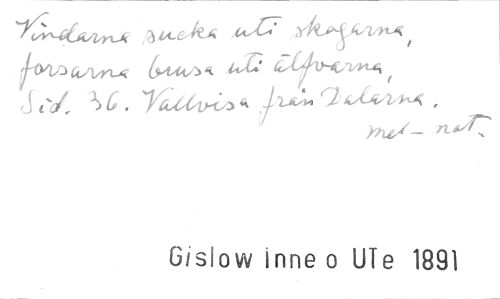 Vindarna sucka uti skogarna,
forsarna brusa uti älfvarna,
Sid. 36. Vallvisa från Dalarna.
mel-not.
Gislow Inne o UTe 1891